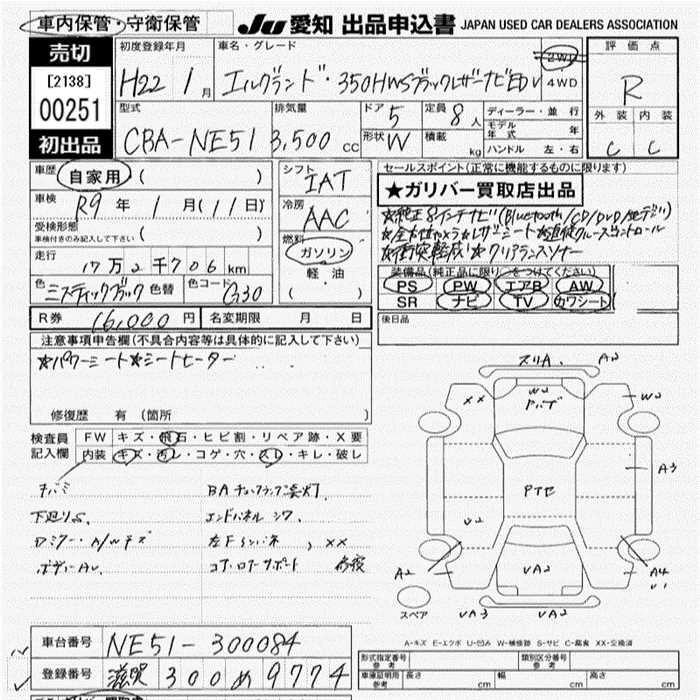 車内保管・守衛保管
JU 愛知 出品申込書 JAPAN USED CAR DEALERS ASSOCIATION
売切
[2138]
00251
初出品
初度登録年月
H22 1月
車名・グレード
エルグランド・350HWSブラックレザーナビED V
2WD
4WD
評価点
R
外装 内装
C C
型式
CBA-NE51
排気量
3,500 cc
ドア 5
形状 W
定員 8人
積載 kg
ディーラー・並行
モデル年式 年
ハンドル 左・右
車歴 自家用 ( )
車検 R9年 1月 (11日)
受検形態
車検付きのみ記入して下さい ( )
走行 17万2千706km
色 ミスティックブラック 色替 色コード G30
R券 16,000円 名変期限 月 日
シフト
IAT
冷房
AAC
燃料
ガソリン
軽油
( )
セールスポイント(正常に機能するものに限ります)
★ガリバー買取店出品
☆純正8インチナビ(Bluetooth/CD/DVD/地デジ)
☆全方位カメラ☆レザーシート☆追従クルーズコントロール
☆衝突軽減☆クリアランスソナー
装備品(純正品に限り○をつけてください)
PS PW エアB AW
SR ナビ TV カワシート
後日品
注意事項申告欄(不具合内容等は具体的に記入して下さい)
☆パワーシート☆シートヒーター
修復歴 有(箇所 )
検査員記入欄
FW キズ・飛石・ヒビ割・リペア跡・X要
内装 キズ・汚レ・コゲ・穴・スレ・キレ・破レ
下廻りS.
ボディーAU.
エンドパネル
コアロアサポート
スリA. A2
XX W2 W2
A3
PTセ
U2
A2 UA2 A4
U1
スペア UA3 UA2
A-キズ E-エクボ U-凹み W-補修跡 S-サビ C-腐食 XX-交換済
車台番号 NE51-300084
登録番号 滋賀 300 め 9774
形式指定番号 参考
類別区分番号 参考
車庫証明用 参考 長さ cm 幅 cm 高さ cm